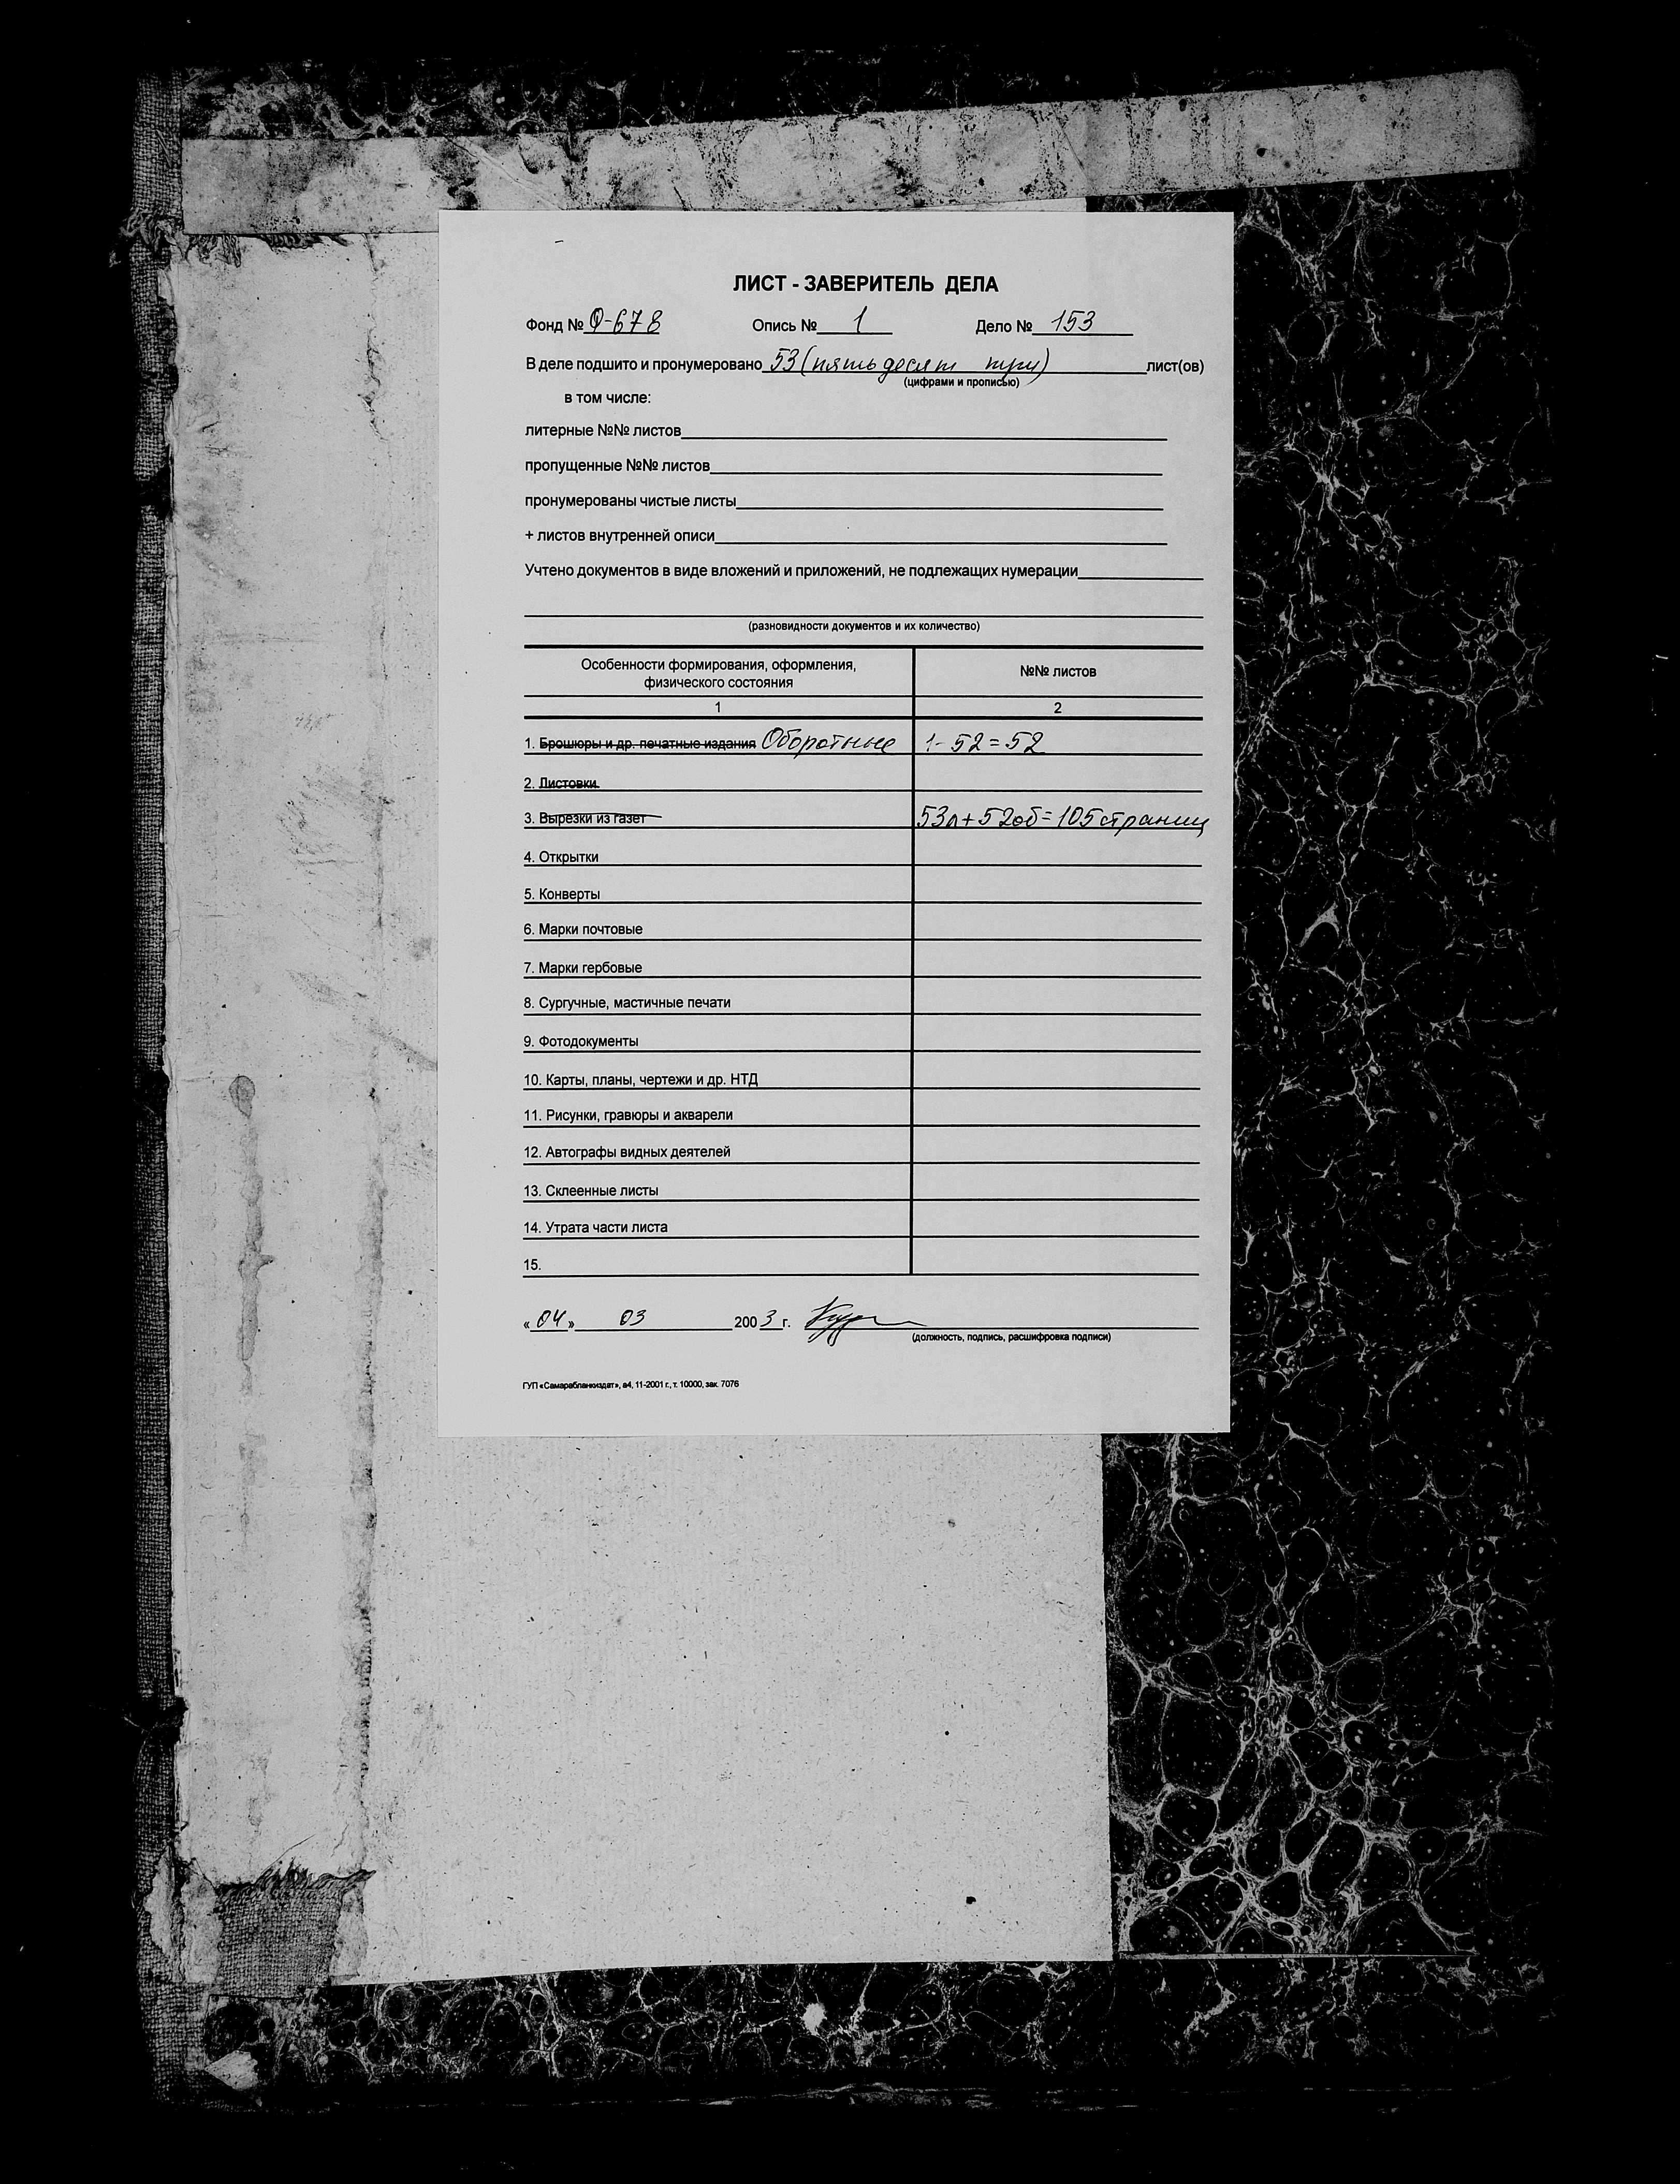 ЛИСТ - ЗАВЕРИТЕЛЬ ДЕЛА
Фонд № Ф-678 Опись № 1 Дело № 153
В деле подшито и пронумеровано 53 (пятьдесят три) лист(ов)
(цифрами и прописью)
в том числе:
литерные №№ листов
пропущенные №№ листов
пронумерованы чистые листы
+ листов внутренней описи
Учтено документов в виде вложений и приложений, не подлежащих нумерации
(разновидности документов и их количество)
Особенности формирования, оформления, №№ листов
физического состояния
1 2
1. Брошюры и др. печатные издания Оборотные 1-52=52
2. Листовки
3. Вырезки из газет 53л+52об=105страниц
4. Открытки
5. Конверты
6. Марки почтовые
7. Марки гербовые
8. Сургучные, мастичные печати
9. Фотодокументы
10. Карты, планы, чертежи и др. НТД
11. Рисунки, гравюры и акварели
12. Автографы видных деятелей
13. Склеенные листы
14. Утрата части листа
15.
«04» 03 2003 г.
(должность, подпись, расшифровка подписи)
ГУП «Самарабланкиздат», а4, 11-2001 г., т. 10000, зак. 7076